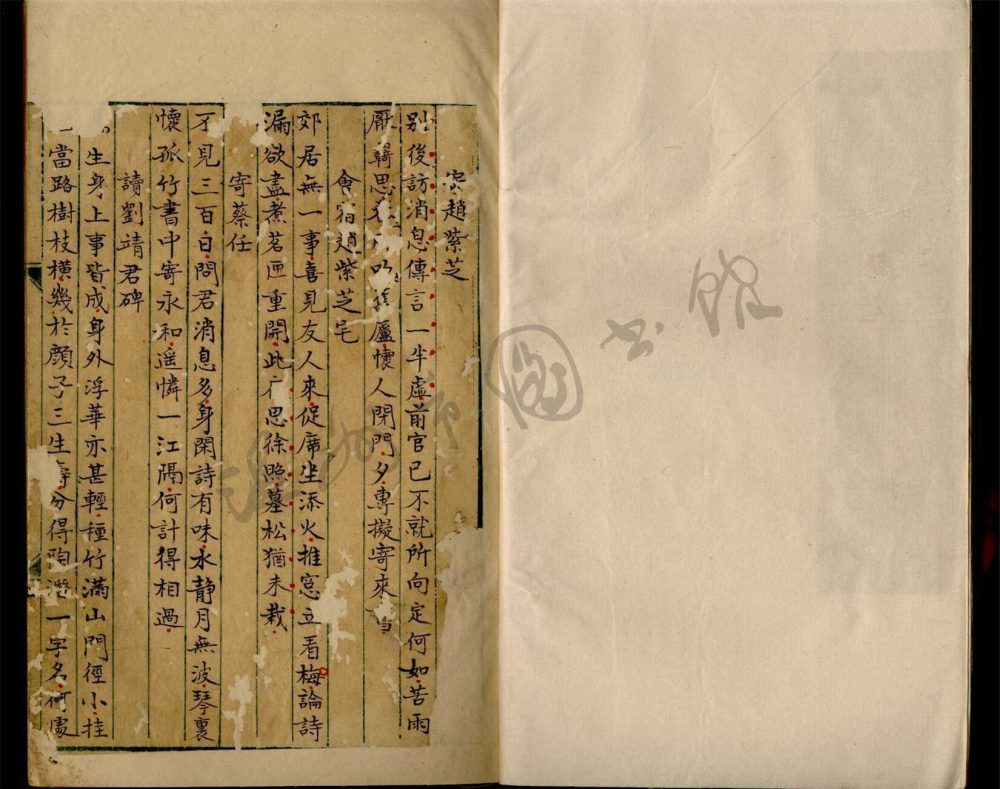 趙紫芝
別後訪消息傳言一半虛前官已不就所向定何如苦雨
思吟廬懷人閉門夕專擬寄來
會宿趙紫芝宅
郊居無一事喜見友人來促席坐添火推窓立看梅論詩
漏欲盡煮茗匣重開此广思徐照墓松猶未栽
寄蔡任
不見三百日問君消息多身閑詩有味水静月無波琴裏
懷孤竹書中寄永和遥憐一江隔何計得相過
讀劉靖君碑
生身上事皆成身外浮華亦甚輕種竹滿山門徑小挂
當路樹枝橫幾於顔子三生壽分得陶潛一字名何處
圖書館